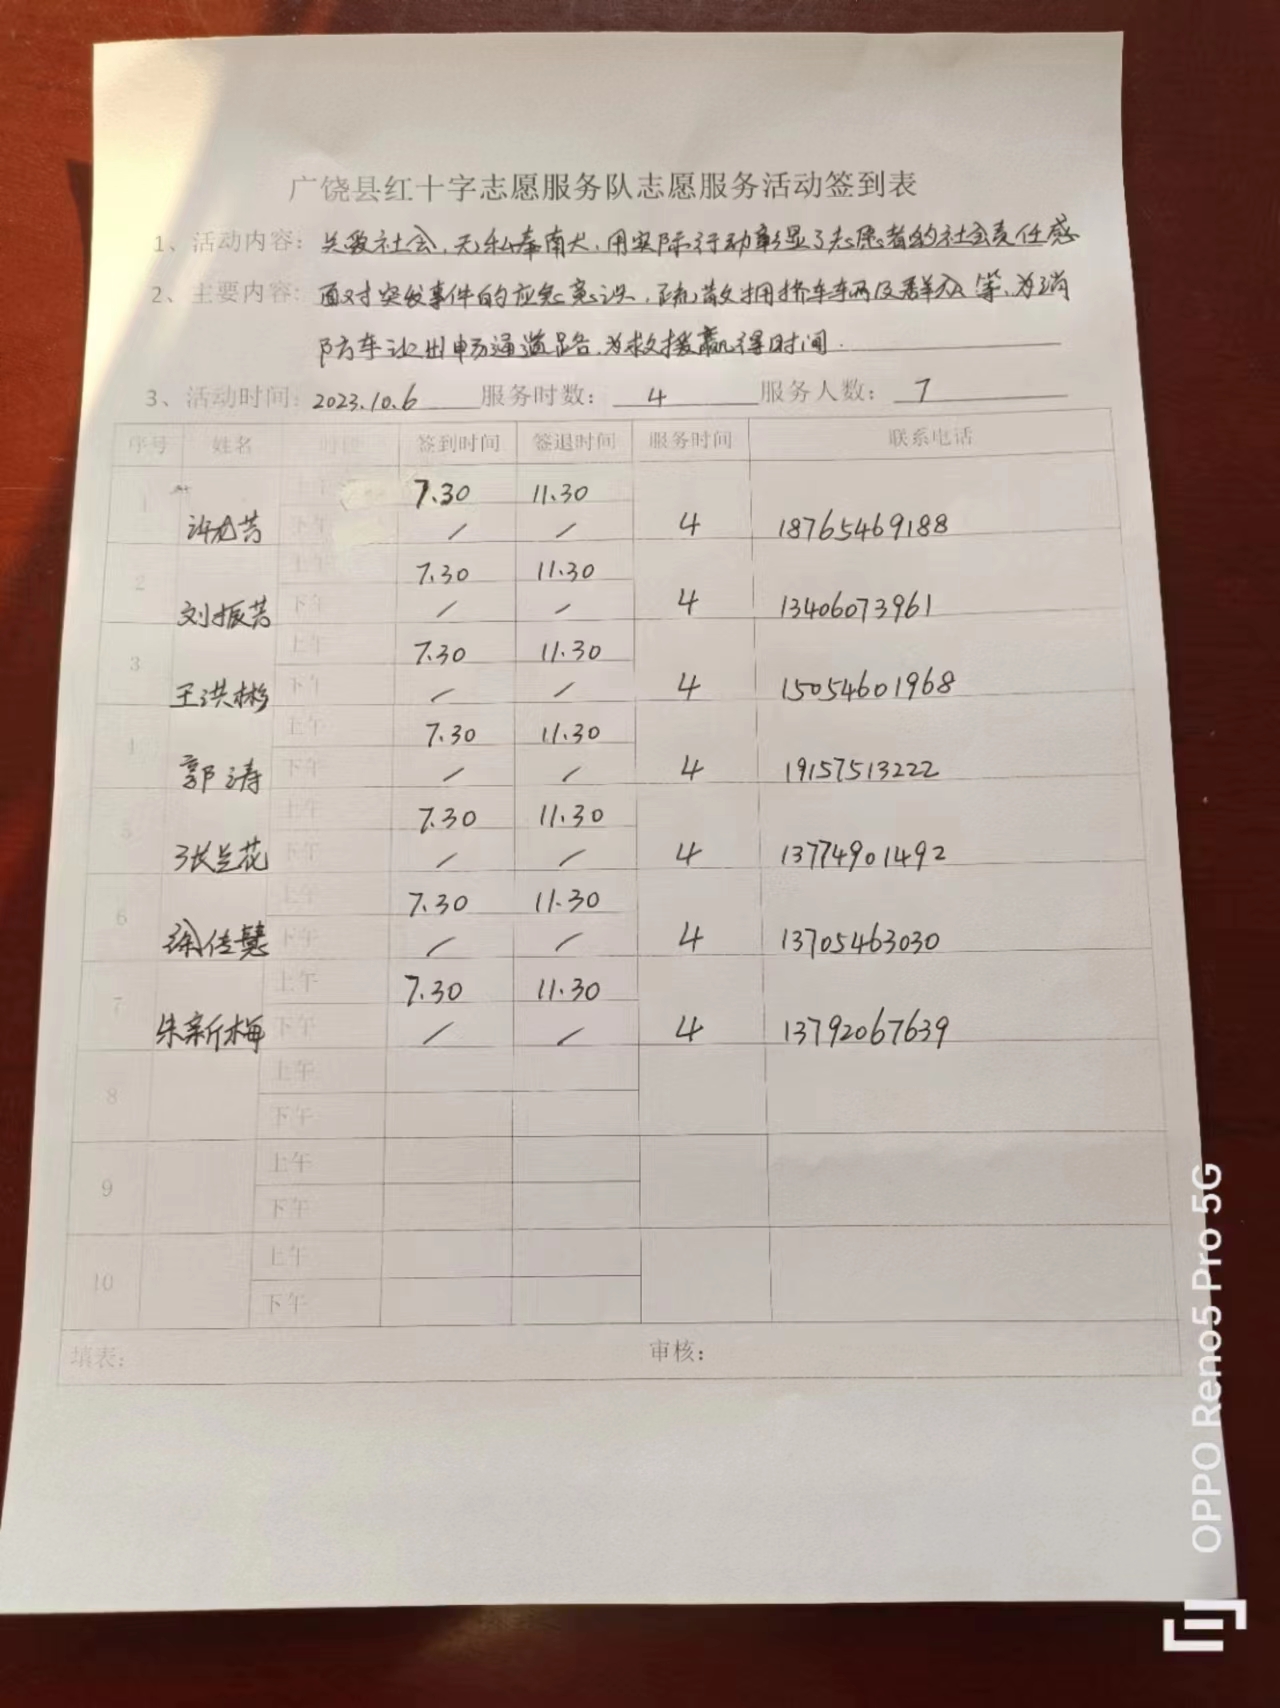 广饶县红十字志愿服务队志愿服务活动签到表
1、活动内容: 关爱社会,无私奉献,用实际行动彰显了志愿者的社会责任感
2、主要内容: 面对突发事件的应急意识,疏散拥挤车辆及群众等,为消
防车让出畅通道路,为救援赢得时间.
3、活动时间: 2023.10.6 服务时数: 4 服务人数: 7
序号 姓名 时段 签到时间 签退时间 服务时间 联系电话
1 上午 7.30 11.30
许 芳 下午 / / 4 18765469188
2 上午 7.30 11.30
刘振芳 下午 / / 4 13406073961
3 上午 7.30 11.30
王洪彬 下午 / / 4 15054601968
4 上午 7.30 11.30
郭涛 下午 / / 4 19157513222
5 上午 7.30 11.30
张兰花 下午 / / 4 13774901492
6 上午 7.30 11.30
徐传慧 下午 / / 4 13705463030
7 上午 7.30 11.30
朱新梅 下午 / / 4 13792067639
8 上午
下午
9 上午
下午
10 上午
下午
填表: 审核:
OPPO Reno5 Pro 5G